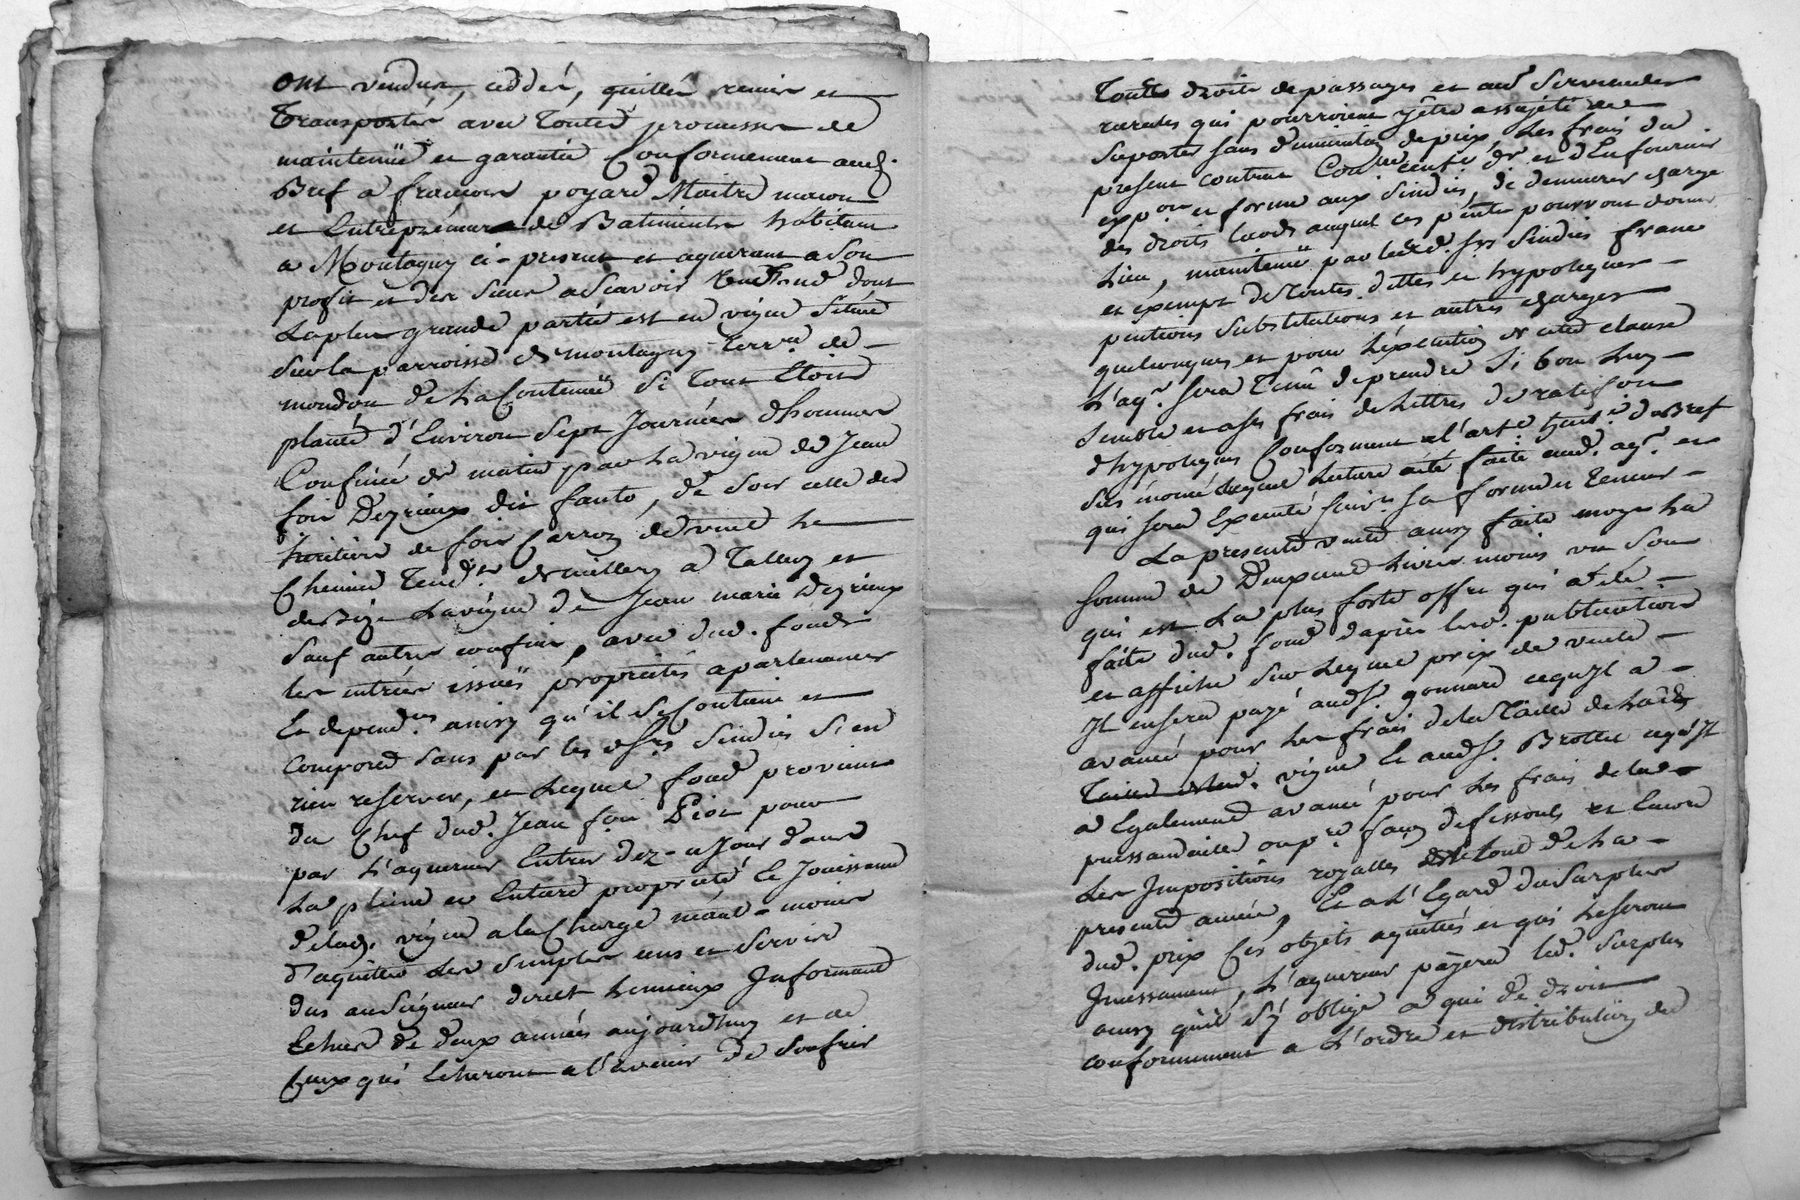 ont vendus, ceddés, quittés remis et
Transportés avec Toutes promesses de
maintenüe et garantie Conformement aud.
Bref a francois poyard Maitre macon
et Entrepreneur de Batiments habitant
a Montagny ci-present et aquerant a Son
profit et des siens ascavoir fond dont
La plus grande partie est en vigne Situé
Sur la parroisse de montagny Terre. de
mondon de La Contenüe Si Tout Etoit
planté d'Environ Sept Journées dhommes
Confinée de matin par La vigne de Jean
foix Deyrieux dit fanto, de Soir celle des
heritiers de foix Carroz de vent Le
Chemin Tend.t de millery a Talluy et
de Bize La vigne de Jean marie Deyrieux
Sauf autres confins, avec dud. fonds
Les entrées issües propriétés apartenances
Et depend.ces ainsy qu'il Se Contient et
Compose Sans par les Sindics Si en
rien reserver, et Lequel fond provient
du Chef dud. Jean foix Piot pour
par L'aquereur Entrer dez-a Jour dans
La pleine et Entiere propriété Et Jouissance
de lad. vigne a la Charge néant-moins
d'aquitter Les Simples cens et Servis
dus au Seigneur direct Informant
Echus de deux années aujourdhuy et de
Ceux qui Echeront a l'avenir de Soufrir
Touts droits de passages et aut. Servitudes
rurales qui pourroient y être assujetie de
Suporter Sans diminution de prix, Les frais du
present contrat Con.lle centi. d.r et d'En fournir
exp.on en forme aux Sindics, de demeurer chargé
des droits Lauds auquel ces p.ntes pourront donner
Lieu, maintenüe par lesd. Srs Sindics franc
et éxempt de Toutes dettes et hypoteques
pentions Substitutions et autres charges
quelconques et pour L'éxécution de cette clause
L'aq.r Sera Tenû de prendre Si bon Luy
Semble et a Ses frais de Lettres de ratif.on
dhypoteques Conforment a l'art. du Bref
Sus énoncé Lequel Lecture a été faite aud. aq.r et
qui Sera Exécuté Suiv.t Sa forme et Teneur
La presente vente ainsy faite moyen.t La
Somme de Deux mille Livres moins un Sou
qui est La plus forte offre qui a été
faite dud. fond d'apres Lesd. publications
et affiches Sur Lequel prix de vente
Il en Sera payé aud. S.r gonnard ce qu'Il a
avancé pour Les frais de la Taille
Taille de lad. vigne Et aud. S.r Brottet ce qu'Il
a Egalement avancé pour Les frais de lad.
puissandaille faux de fessouls et Encore
Les Impositions royalles de La
presente année, Et a L'Egard du Surplus
dud. prix Ces objets aquittés et qui Le Seront
Incessament, L'aquereur payera led. Surplus
ainsy qu'il S'y oblige a qui de droit
conformement a L'ordre et distribution de